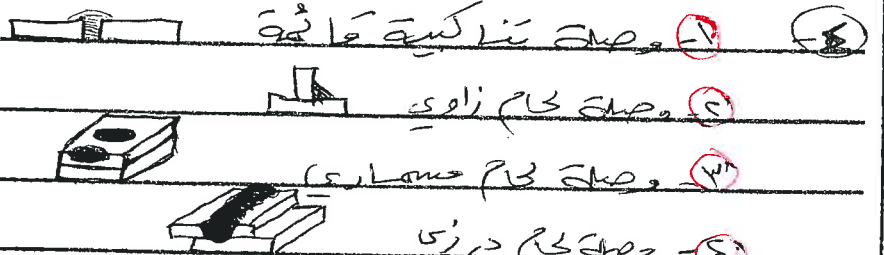 ٤- ١- وصلة تناكبية قائمة
٢- وصلة لحام زاوي
٣- وصلة لحام مسماري
٤- وصلة لحام درزي